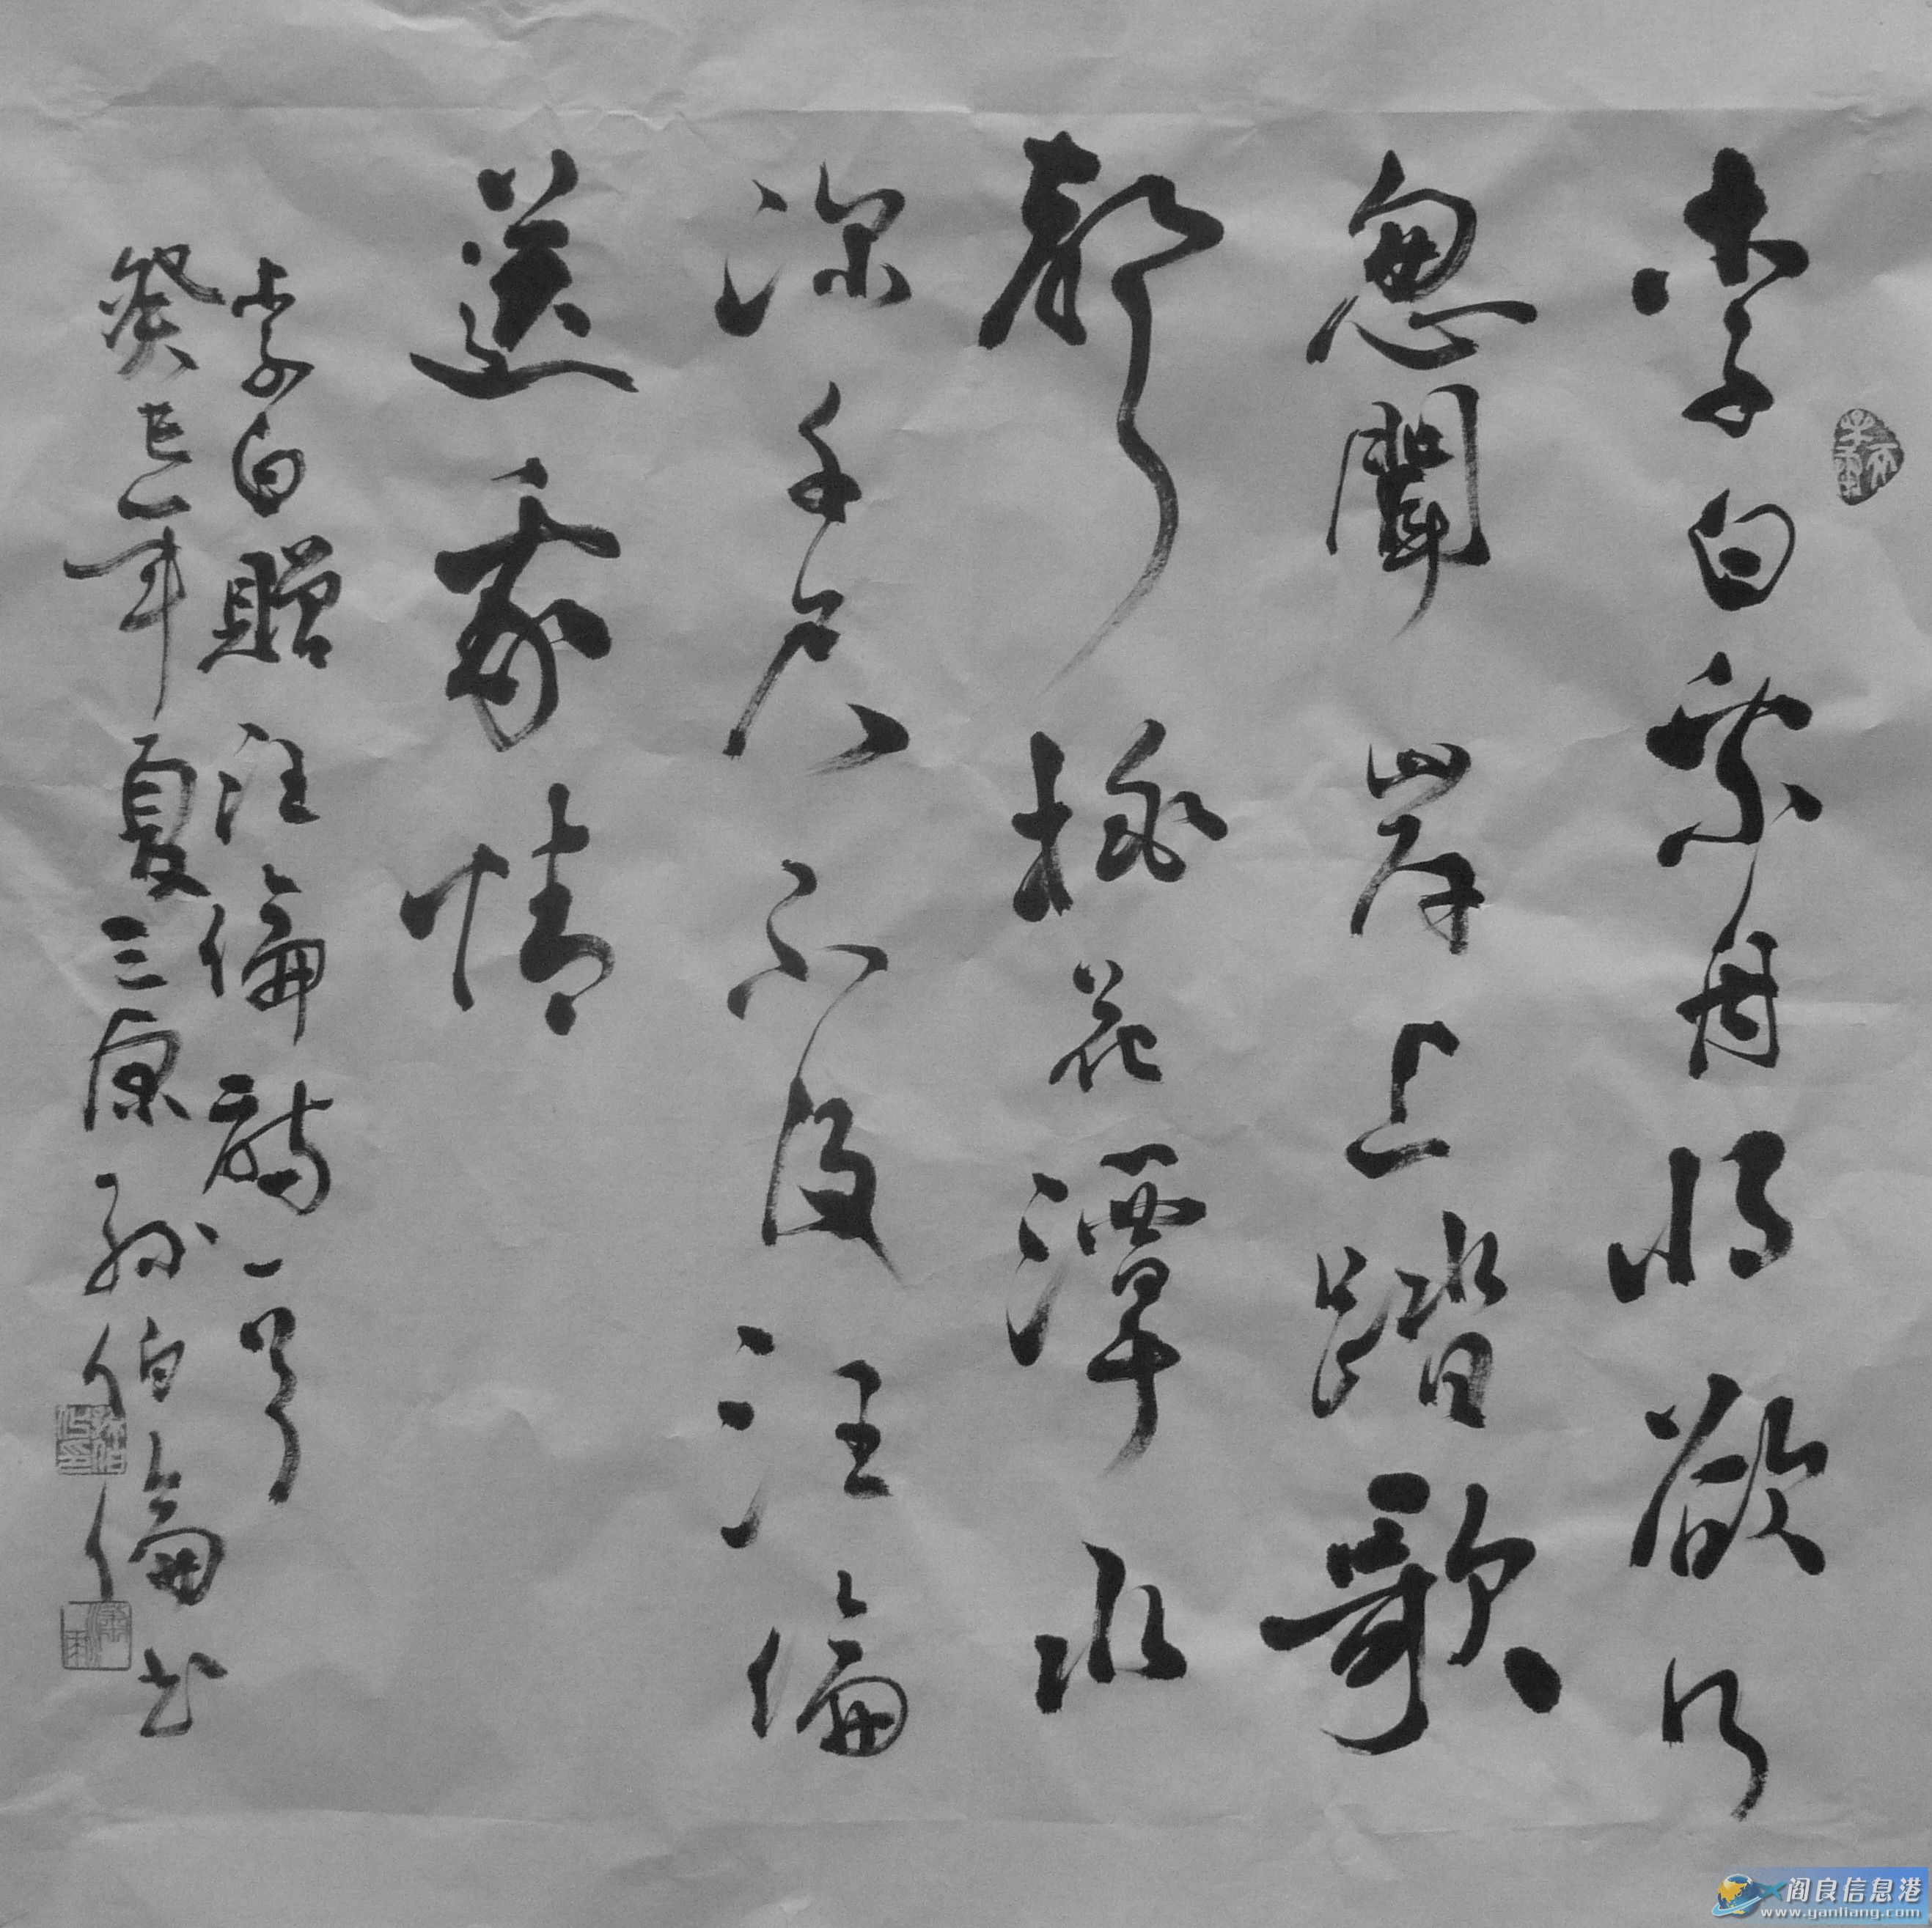 李白乘舟将欲行
忽聞岸上踏歌
聲桃花潭水
深千尺不及汪倫
送我情
李白贈汪倫詩一首
癸巳年夏三原孫伯倫书
阎良信息港
www.yanliang.com